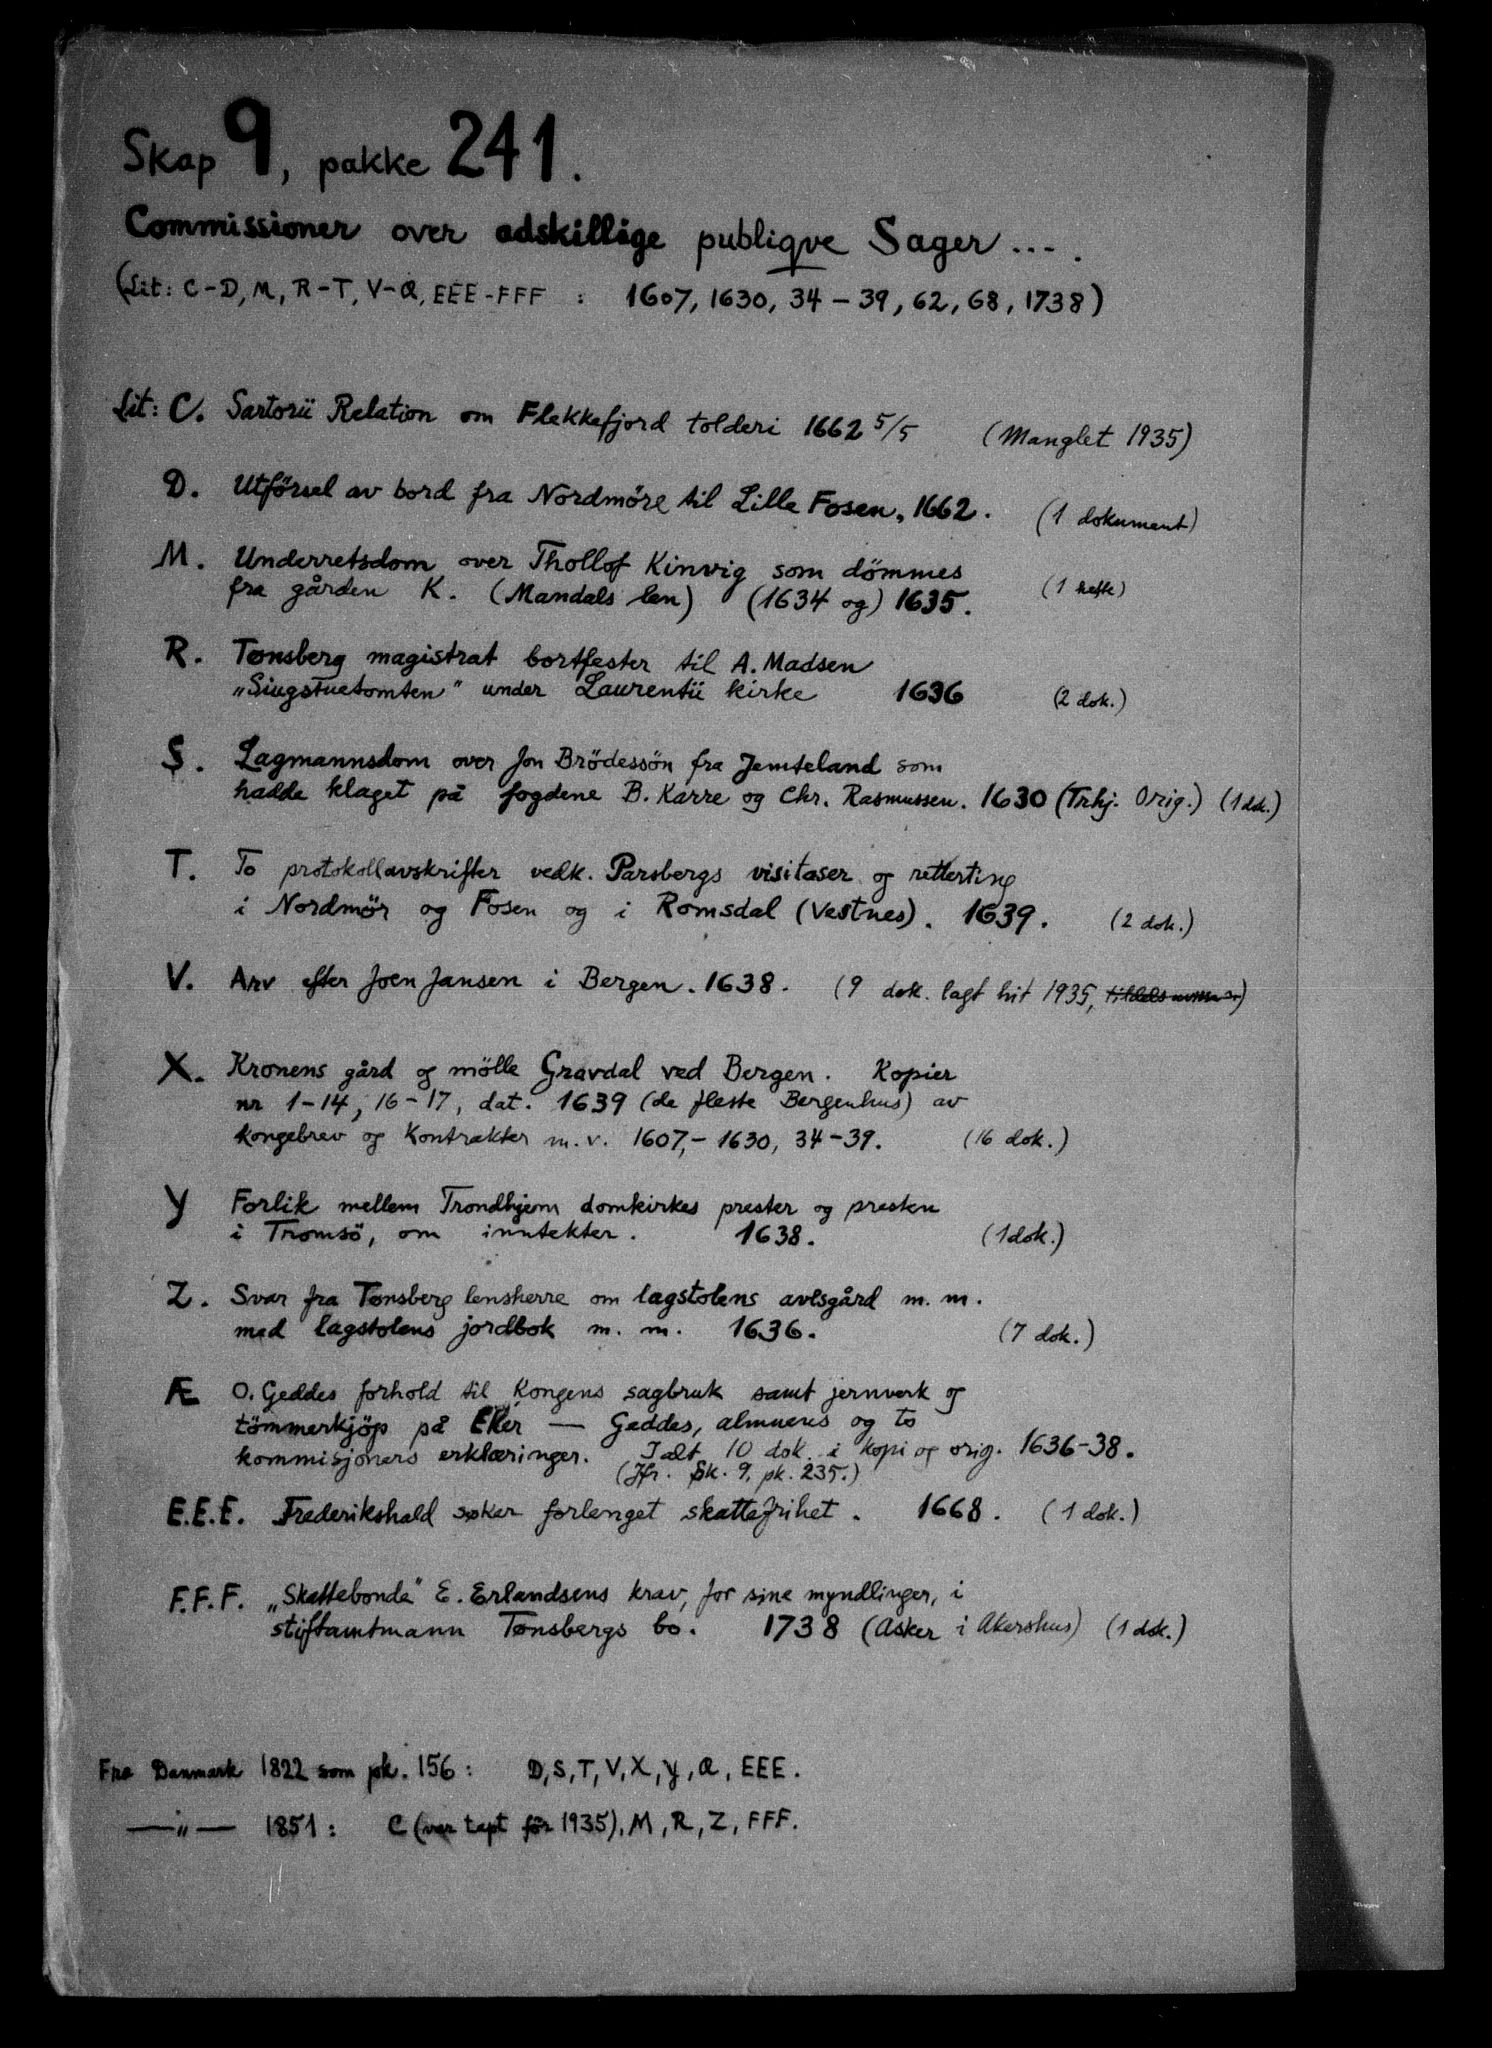 Skap 9, pakke 241.
Commissioner over adskillige publiqve Sager ... .
(Lit: C-D, M, R-T, V-Æ, EEE-FFF : 1607, 1630, 34-39, 62, 68, 1738)
Lit: C. Sartorii Relation om Flekkefjord tolderi 1662 5/5 (Manglet 1935)
D. Utförsel av bord fra Nordmöre til Lille Fosen, 1662. (1 dokument)
M. Underretsdom over Thollof Kinvig som dömmes
fra gården K. (Mandals len) (1634 og) 1635. (1 hefte)
R. Tønsberg magistrat bortfester til A. Madsen
„Siugstuetomten" under Laurentii kirke 1636 (2 dok.)
S. Lagmannsdom over Jon Brödessön fra Jemteland som
hadde klaget på fogdene B. Karre og Chr. Rasmussen. 1630 (Trhj. Orig.) (1 dok.)
T. To protokollavskrifter vedk. Parsbergs visitaser og retterting
i Nordmör og Fosen og i Romsdal (Vestnes). 1639. (2 dok.)
V. Arv efter Joen Jansen i Bergen. 1638. (9 dok. lagt hit 1935,)
X. Kronens gård og mölle Gravdal ved Bergen. Kopier
nr 1-14, 16-17, dat. 1639 (de fleste Bergenhus) av
kongebrev og kontrakter m.v. 1607,- 1630, 34-39. (16 dok.)
Y Forlik mellem Trondhjem domkirkes prester og presten
i Tromsö, om inntekter. 1638. (1 dok.)
Z. Svar fra Tønsberg lensherre om lagstolens avlsgård m.m.
med lagstolens jordbok m. m. 1636. (7 dok.)
Æ O. Geddes forhold til Kongens sagbruk samt jernverk og
tömmerkjöp på Eker — Geddes, almuens og to
kommisjoners erklæringer. I alt 10 dok. i kopi og orig. 1636-38.
(Jfr. Sk. 9, pk. 235.)
E.E.E. Frederikshald søker forlenget skattefrihet. 1668. (1 dok.)
F.F.F. „Skattebonde" E. Erlandsens krav, for sine myndlinger, i
stiftamtmann Tønsbergs bo. 1738 (Asker i Akershus) (1 dok.)
Fra Danmark 1822 som pk. 156: D, S, T, V, X, Y, Æ, EEE.
—„— 1851: C (var tapt för 1935), M, R, Z, FFF.